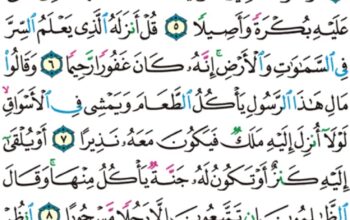 عَلَيْهِ بُكْرَةً وَأَصِيلًا ٥ قُلْ أَنزَلَهُ ٱلَّذِى يَعْلَمُ ٱلسِّرَّ
فِى ٱلسَّمَٰوَٰتِ وَٱلْأَرْضِ ۚ إِنَّهُۥ كَانَ غَفُورًا رَّحِيمًا ٦ وَقَالُوا۟
مَالِ هَٰذَا ٱلرَّسُولِ يَأْكُلُ ٱلطَّعَامَ وَيَمْشِى فِى ٱلْأَسْوَاقِ ۙ
لَوْلَآ أُنزِلَ إِلَيْهِ مَلَكٌ فَيَكُونَ مَعَهُۥ نَذِيرًا ٧ أَوْ يُلْقَىٰٓ
إِلَيْهِ كَنزٌ أَوْ تَكُونُ لَهُۥ جَنَّةٌ يَأْكُلُ مِنْهَا ۚ وَقَالَ
ٱلظَّٰلِمُونَ إِن تَتَّبِعُونَ إِلَّا رَجُلًا مَّسْحُورًا ٨ ٱنظُرْ